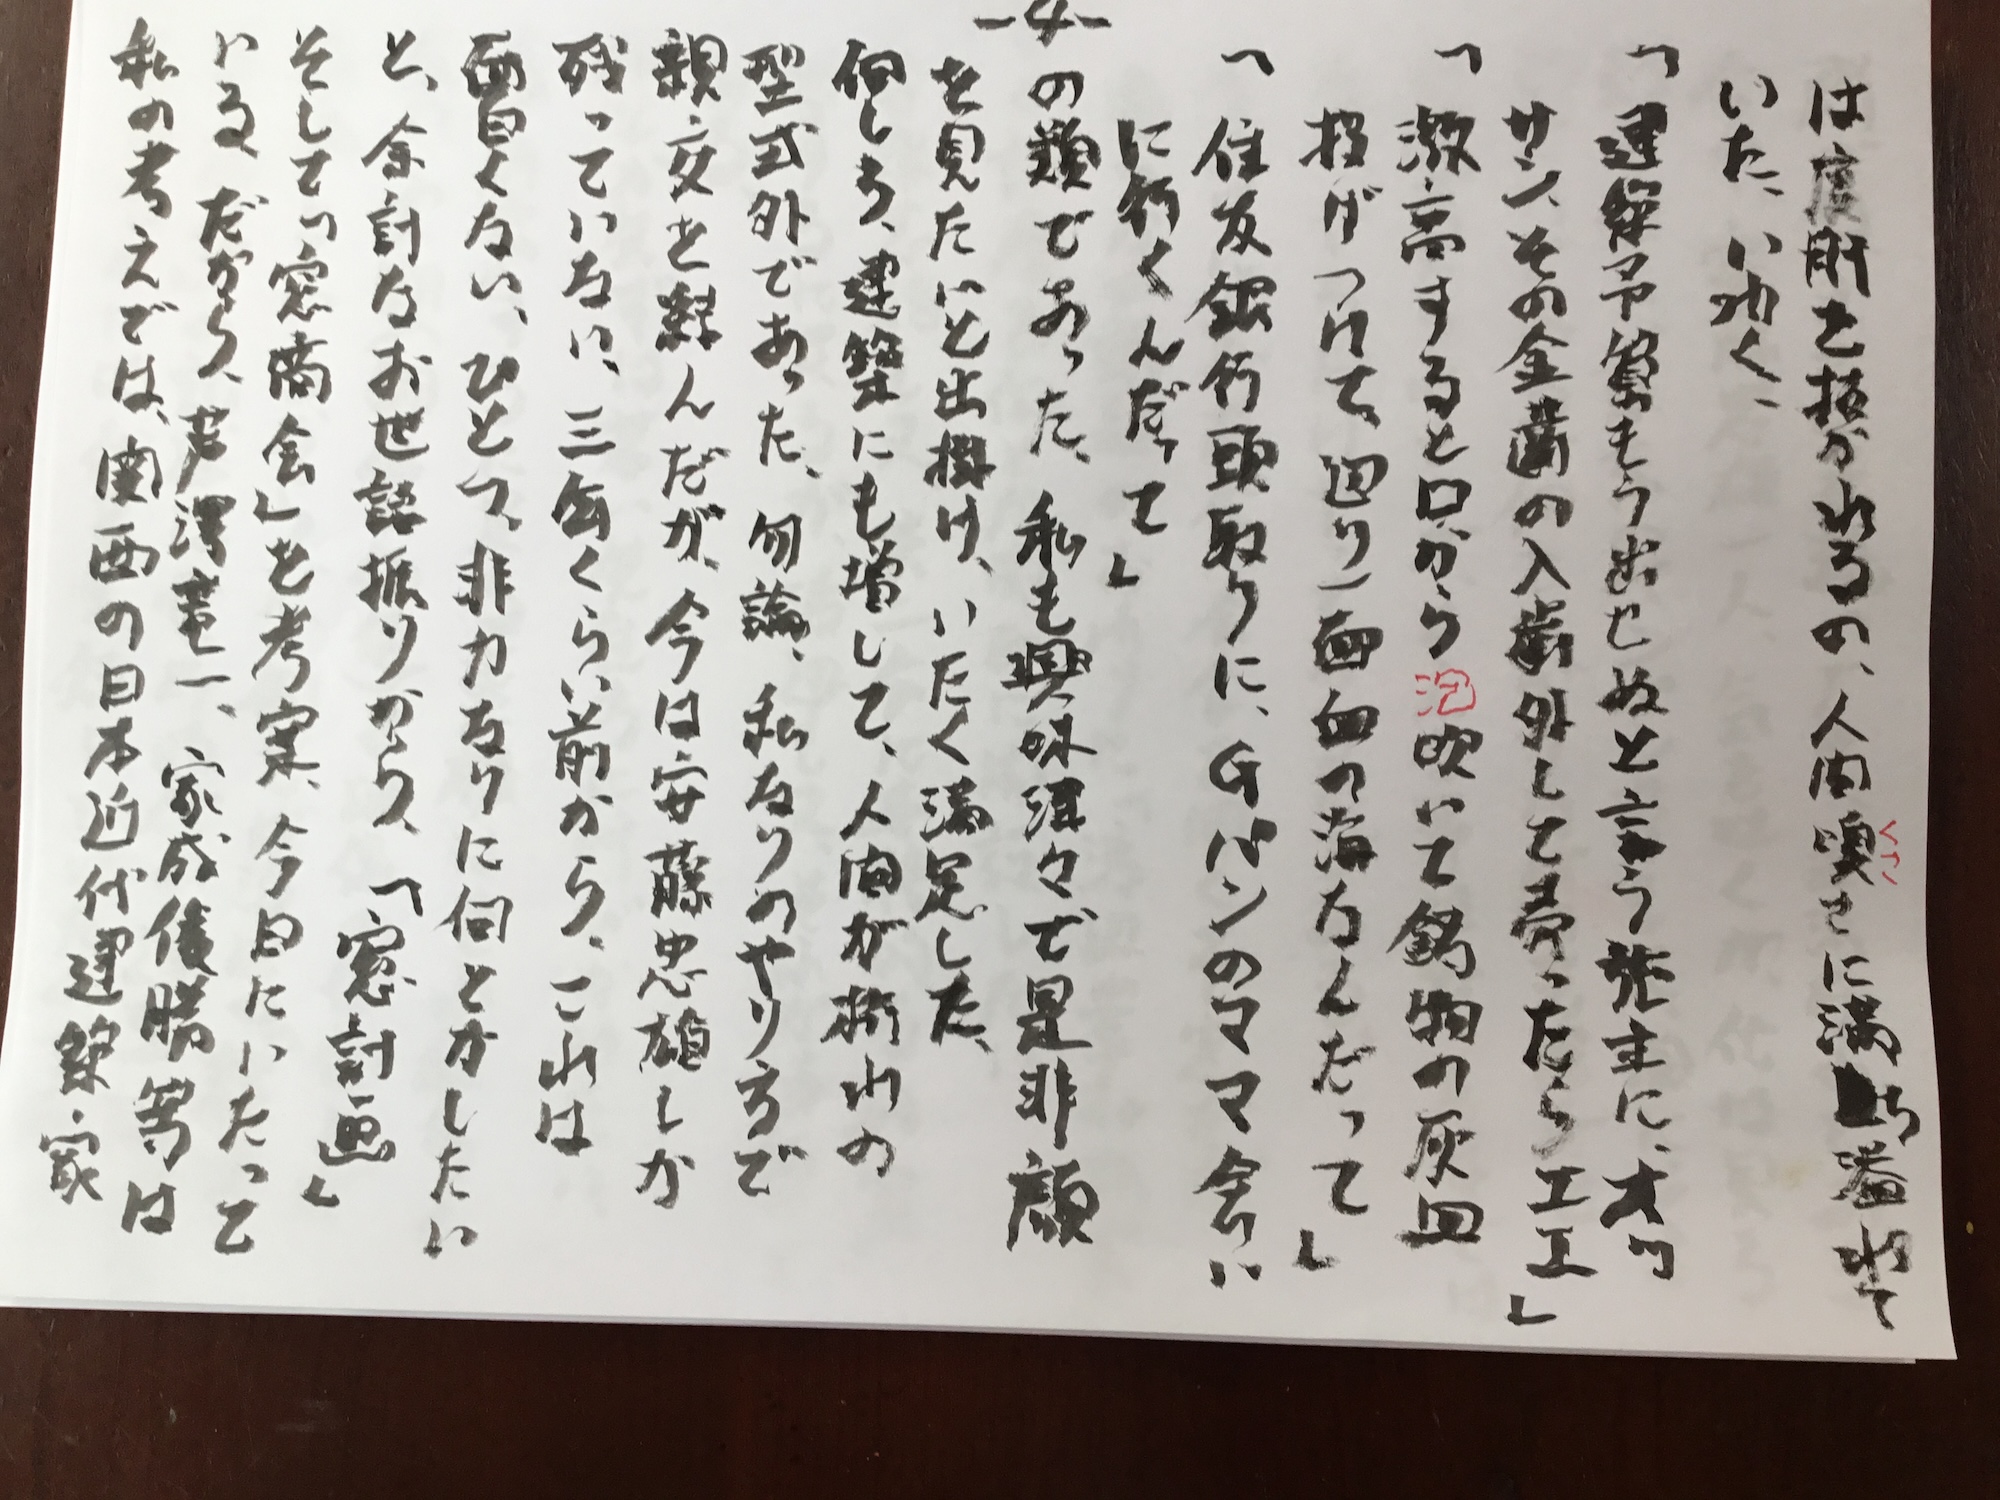 -4-
は度肝を抜かれるの、人間嗅さに満ち溢れて
くさ
いた、いわく、
「建築予算もう出せぬと言う施主に、大川
サン、その金歯の入歯外して売ったらエエ」
「激高すると口から泡吹いて鋳物の灰皿
投げつけて、辺り一面血の海なんだって」
「住友銀行頭取りに、Gパンのママ会い
に行くんだって」
の類であった、私も興味津々で是非顔
を見たいと出掛け、いたく満足した、
何しろ、建築にも増して、人間が桁外れの
型式外であった、勿論、私なりのやり方で
親交を結んだが、今は安藤忠雄しか
残っていない、三年くらい前から、これは
面白くない、ひとつ、非力なりに何とかしたい
と、余計なお世話振りから、「窓計画」
そして「窓商会」を考案、今日にいたって
いる、だから、芦澤竜一、家成俊勝等は
私の考えでは、関西の日本近代建築家